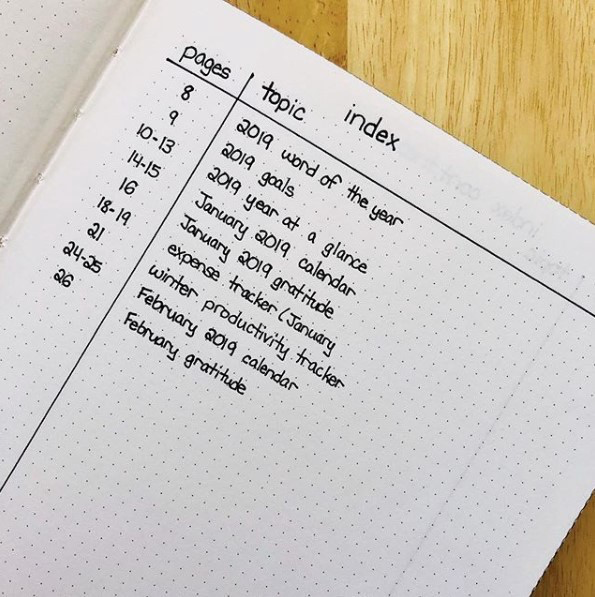 index
pages topic
8 2019 word of the year
9 2019 goals
10-13 2019 year at a glance
14-15 January 2019 calendar
16 January 2019 gratitude
18-19 expense tracker (January
21 winter productivity tracker
24-25 February 2019 calendar
26 February gratitude